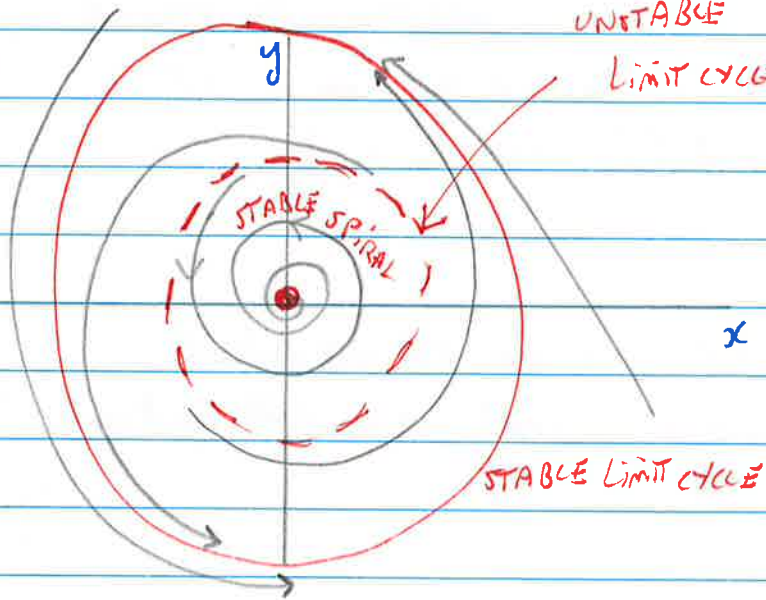 UNSTABLE
LIMIT CYCLE
y
STABLE SPIRAL
x
STABLE LIMIT CYCLE